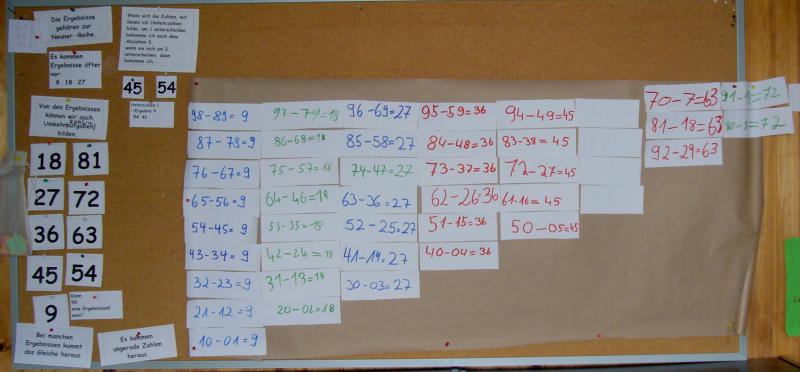 Die Ergebnisse
gehören zur
Neuner -Reihe.
Wenn sich die Zahlen, mit
denen ich Umkehrzahlen
bilde, um 1 unterscheiden,
bekomme ich nach dem
Abziehen 9.
wenn sie sich um 2
unterscheiden, dann
bekomme ich
Es kommen
Ergebnisse öfter
vor:
9 18 27
45 54
Von den Ergebnissen
können wir auch
Umkehr
bilden.
Unterschied 1
Ergebnis 9
54 45
18 81
27 72
36 63
45 54
9
Kann
90
eine Ergebniszahl
sein?
Bei manchen
Ergebnissen kommt
das Gleiche heraus.
Es kommen
ungerade Zahlen
heraus.
98-89=9 97-79=18 96-69=27 95-59=36 94-49=45
87-78=9 86-68=18 85-58=27 84-48=36 83-38=45
76-67=9 75-57=18 74-47=27 73-37=36 72-27=45
65-56=9 64-46=18 63-36=27 62-26=36 61-16=45
54-45=9 53-35=18 52-25=27 51-15=36 50-05=45
43-34=9 42-24=18 41-14=27 40-04=36
32-23=9 31-13=18 30-03=27
21-12=9 20-02=18
10-01=9
70-7=63
81-18=63
92-29=63